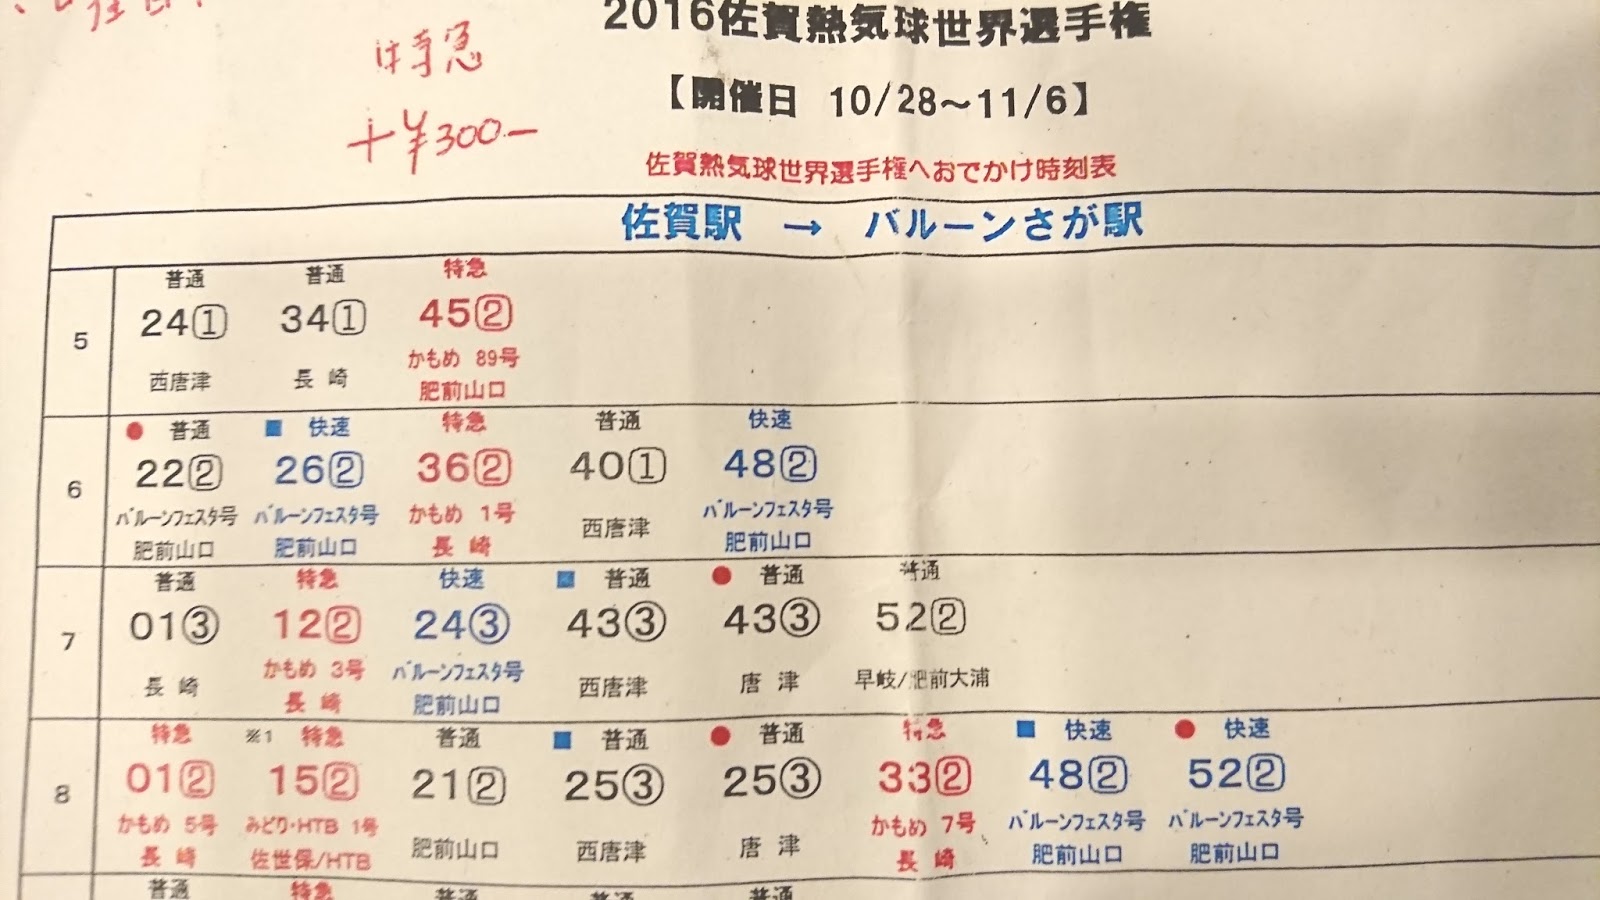 2016佐賀熱気球世界選手権
特急
【開催日 10/28～11/6】
+¥300-
佐賀熱気球世界選手権へおでかけ時刻表
佐賀駅 → バルーンさが駅
5
普通 普通 特急
24① 34① 45②
かもめ 89号
西唐津 長崎 肥前山口
6
●普通 ■快速 特急 普通 快速
22② 26② 36② 40① 48②
バルーンフェスタ号 バルーンフェスタ号 かもめ 1号 バルーンフェスタ号
肥前山口 肥前山口 長崎 西唐津 肥前山口
7
普通 特急 快速 ■普通 ●普通 普通
01③ 12② 24③ 43③ 43③ 52②
かもめ 3号 バルーンフェスタ号
長崎 長崎 肥前山口 西唐津 唐津 早岐/肥前大浦
8
特急 ※1 特急 普通 ■普通 ●普通 特急 ■快速 ●快速
01② 15② 21② 25③ 25③ 33② 48② 52②
かもめ 5号 みどり・HTB 1号 かもめ 7号 バルーンフェスタ号 バルーンフェスタ号
長崎 佐世保/HTB 肥前山口 西唐津 唐津 長崎 肥前山口 肥前山口
普通 特急 普通 普通